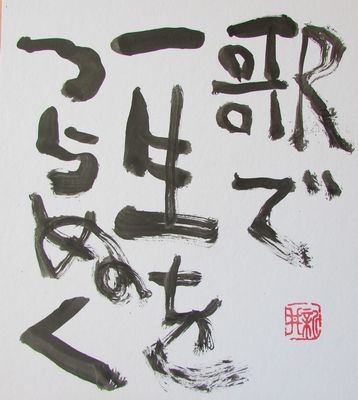 歌で
一生を
つらぬく